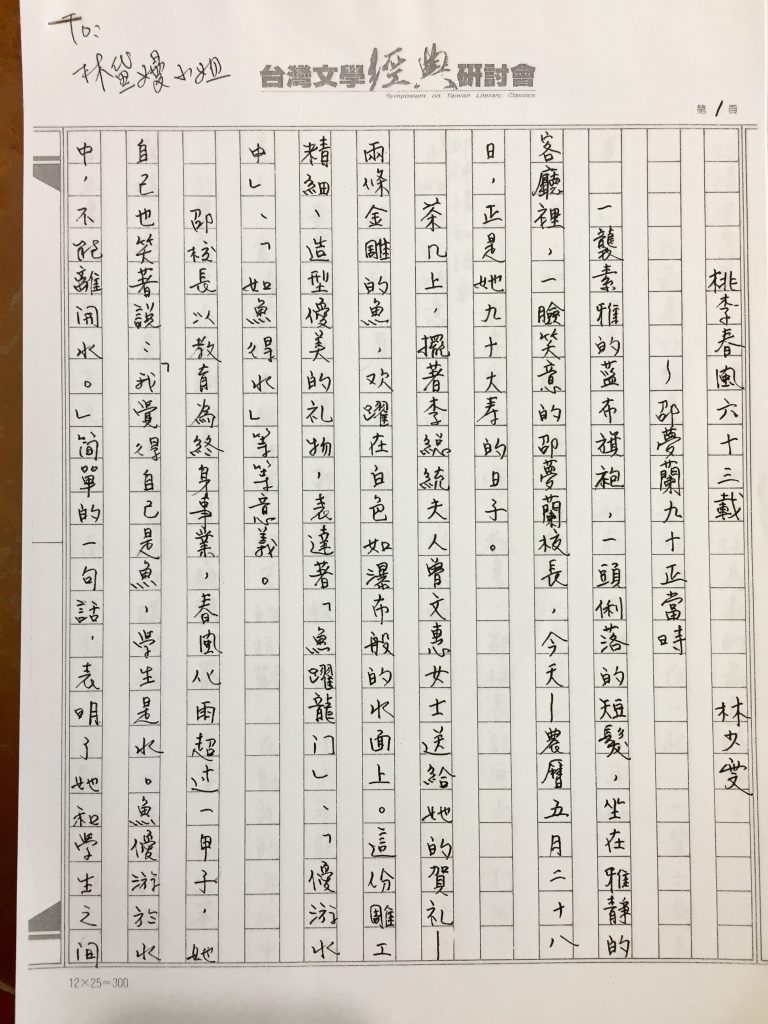 To:
林黛嫚小姐
台灣文學經典研討會
Symposium on Taiwan Literary Classics
第1頁
桃李春風六十三載 林少雯
～邵夢蘭九十正當時
一襲素雅的藍布旗袍，一頭俐落的短髮，坐在雅靜的
客廳裡，一臉笑意的邵夢蘭校長，今天—農曆五月二十八
日，正是她九十大壽的日子。
茶几上，擺著李總統夫人曾文惠女士送給她的賀禮—
兩條金雕的魚，欢躍在白色如瀑布般的水面上。這份雕工
精細、造型優美的礼物，表達著「魚躍龍门」、「優游水
中」、「如魚得水」等等意義。
邵校長以教育為終身事業，春風化雨超过一甲子，她
自己也笑著說：「我覺得自己是魚，學生是水。魚優游於水
中，不能離開水。」简單的一句話，表明了她和學生之间
12×25=300